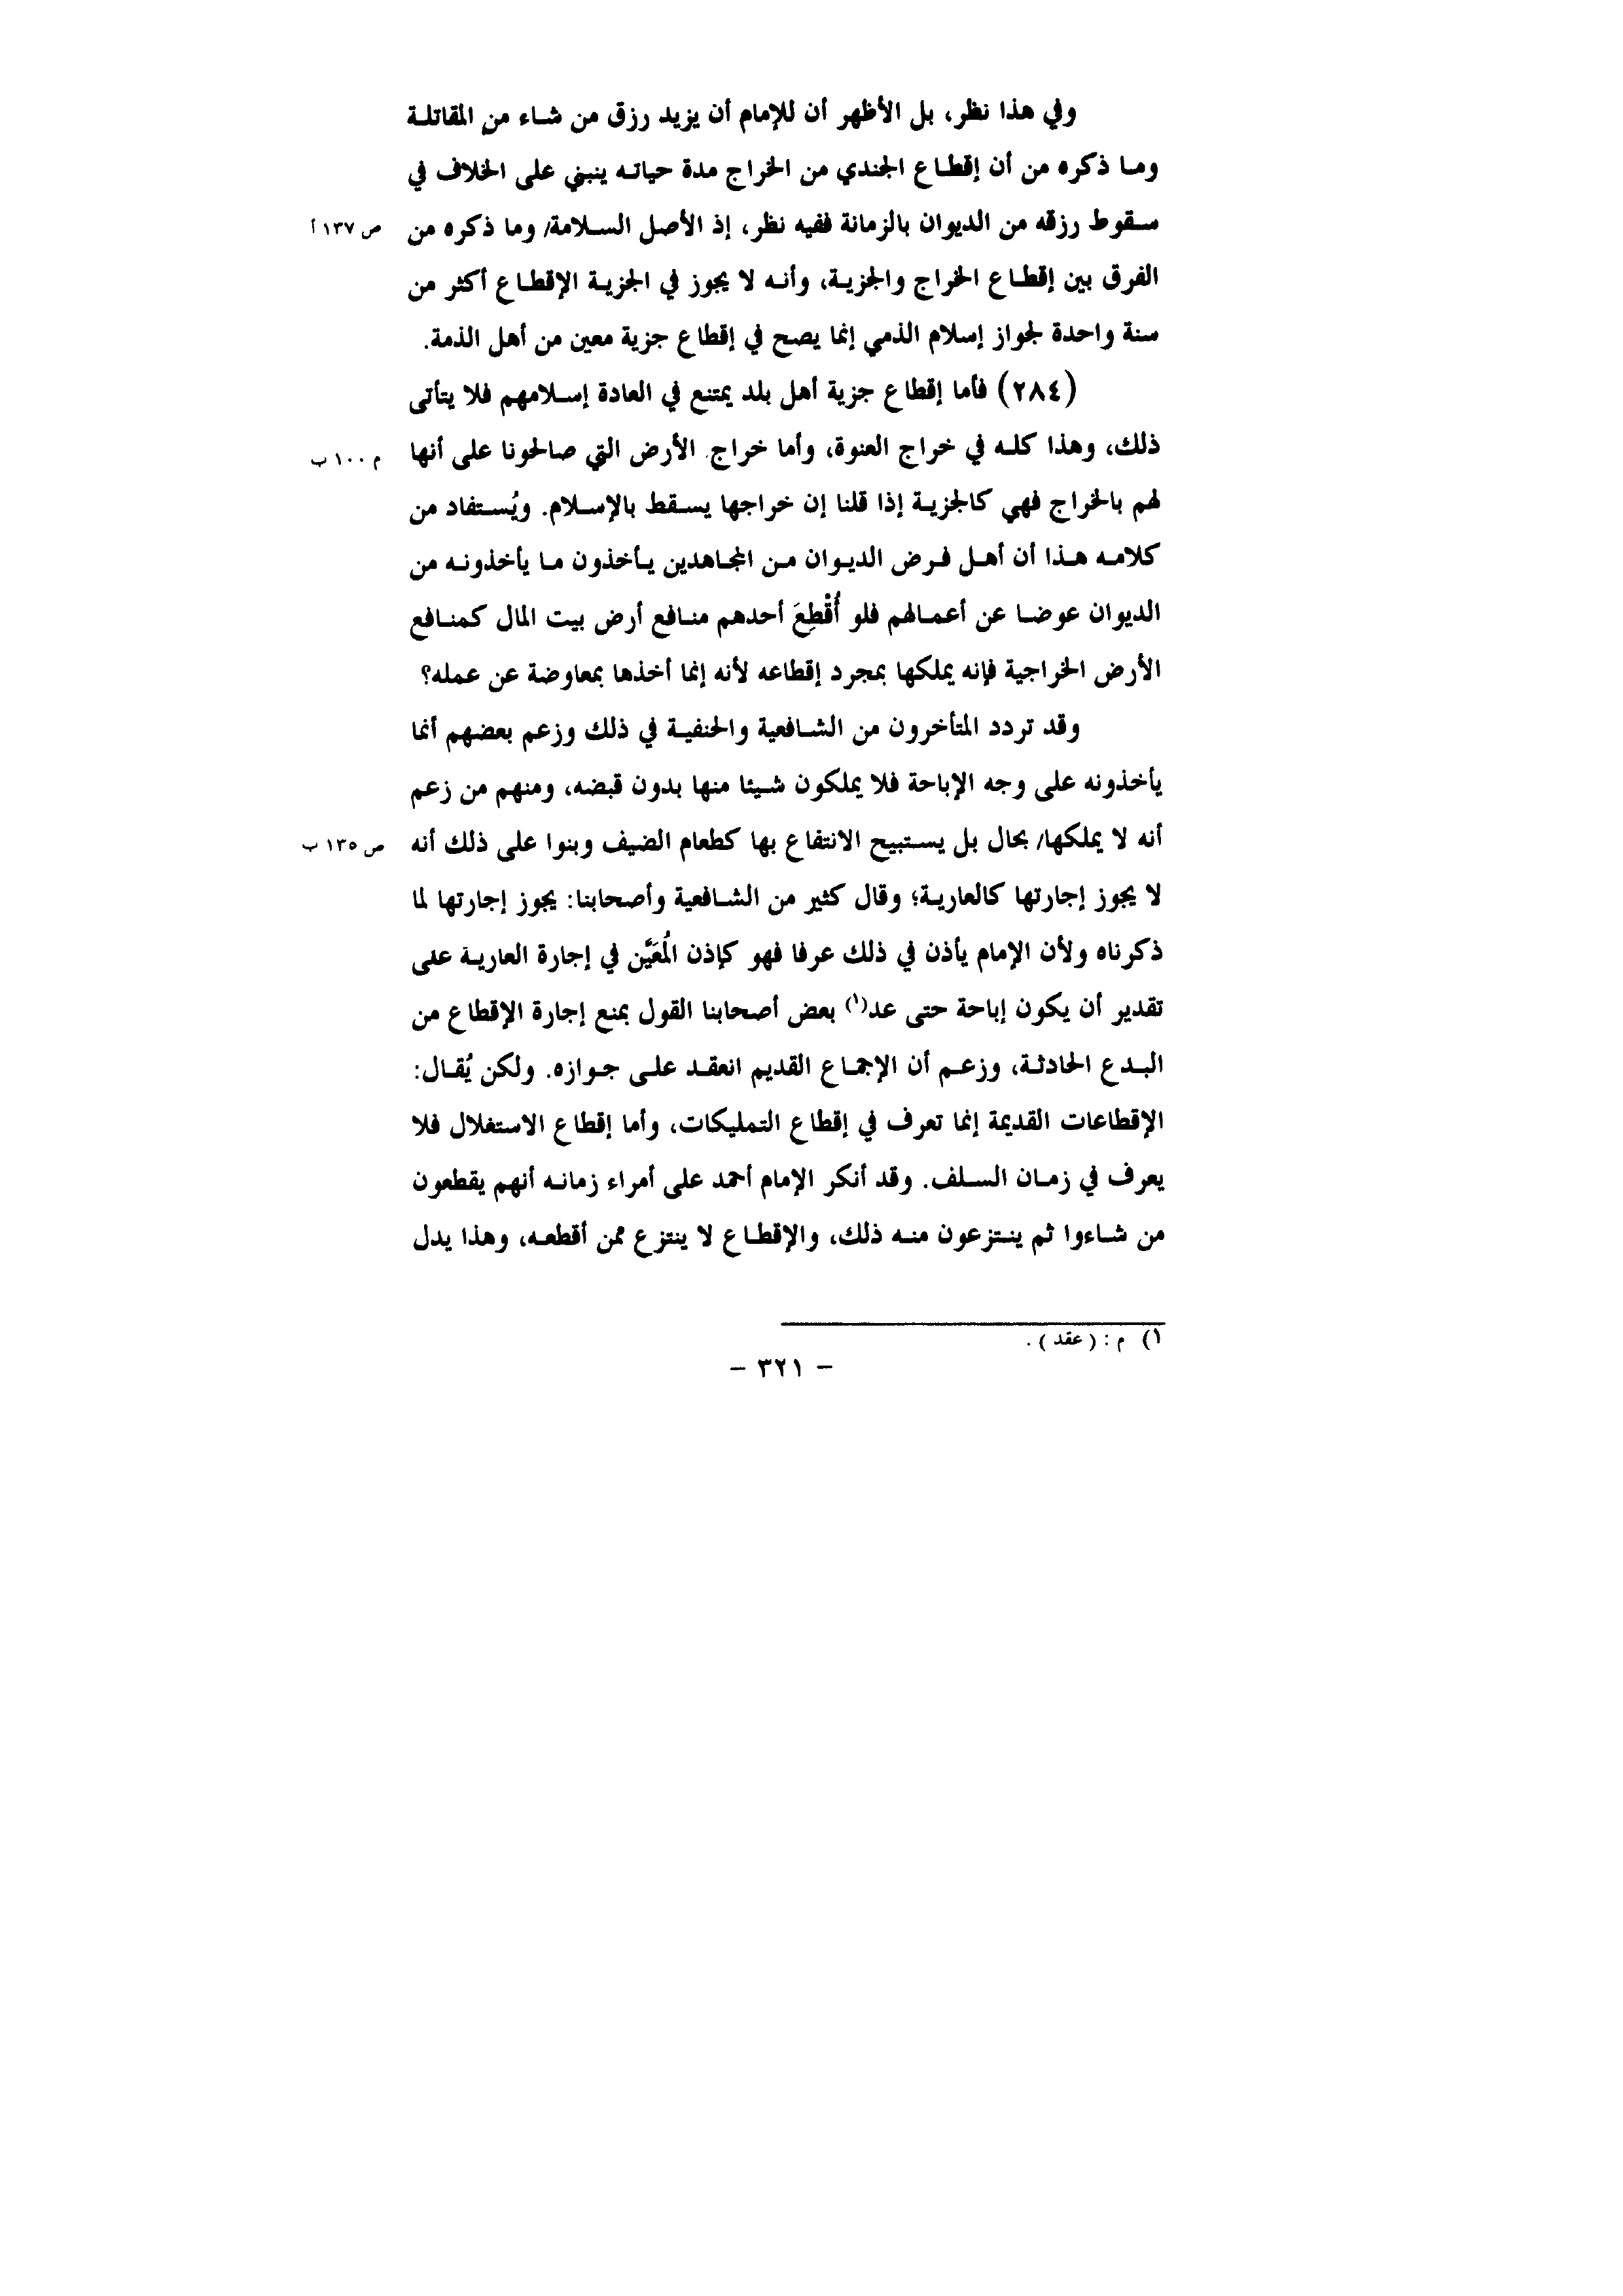 وفي هذا نظر، بل الأظهر أن للإمام أن يزيد رزق من شاء من المقاتلة
وما ذكره من أن إقطاع الجندي من الخراج مدة حياته ينبني على الخلاف في
سقوط رزقه من الديوان بالزمانة ففيه نظر، إذ الأصل السلامة/ وما ذكره من
ص ١٣٧ أ
الفرق بين إقطاع الخراج والجزية، وأنه لا يجوز في الجزية الإقطاع أكثر من
سنة واحدة لجواز إسلام الذمي إنما يصح في إقطاع جزية معين من أهل الذمة.
(٢٨٤) فأما إقطاع جزية أهل بلد يمتنع في العادة إسلامهم فلا يتأتى
ذلك، وهذا كله في خراج العنوة، وأما خراج الأرض التي صالحونا على أنها
م ١٠٠ ب
لهم بالخراج فهي كالجزية إذا قلنا إن خراجها يسقط بالإسلام. ويُستفاد من
كلامه هذا أن أهل فرض الديوان من المجاهدين يأخذون ما يأخذونه من
الديوان عوضا عن أعمالهم فلو أُقْطِعَ أحدهم منافع أرض بيت المال كمنافع
الأرض الخراجية فإنه يملكها بمجرد إقطاعه لأنه إنما أخذها بمعاوضة عن عمله؟
وقد تردد المتأخرون من الشافعية والحنفية في ذلك وزعم بعضهم أنما
يأخذونه على وجه الإباحة فلا يملكون شيئا منها بدون قبضه، ومنهم من زعم
أنه لا يملكها/ بحال بل يستبيح الانتفاع بها كطعام الضيف وبنوا على ذلك أنه
ص ١٣٥ ب
لا يجوز إجارتها كالعارية؛ وقال كثير من الشافعية وأصحابنا: يجوز إجارتها لما
ذكرناه ولأن الإمام يأذن في ذلك عرفا فهو كإذن المُعَيَّن في إجارة العارية على
تقدير أن يكون إباحة حتى عد(١) بعض أصحابنا القول بمنع إجارة الإقطاع من
البدع الحادثة، وزعم أن الإجماع القديم انعقد على جوازه. ولكن يُقال:
الإقطاعات القديمة إنما تعرف في إقطاع التمليكات، وأما إقطاع الاستغلال فلا
يعرف في زمان السلف. وقد أنكر الإمام أحمد على أمراء زمانه أنهم يقطعون
من شاءوا ثم ينتزعون منه ذلك، والإقطاع لا ينتزع ممن أقطعه، وهذا يدل
١) م : ( عقد ) .
– ٣٢١ –